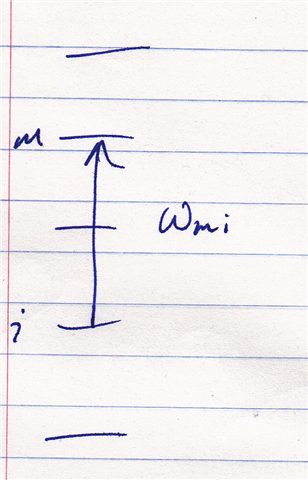 m
ωmi
i